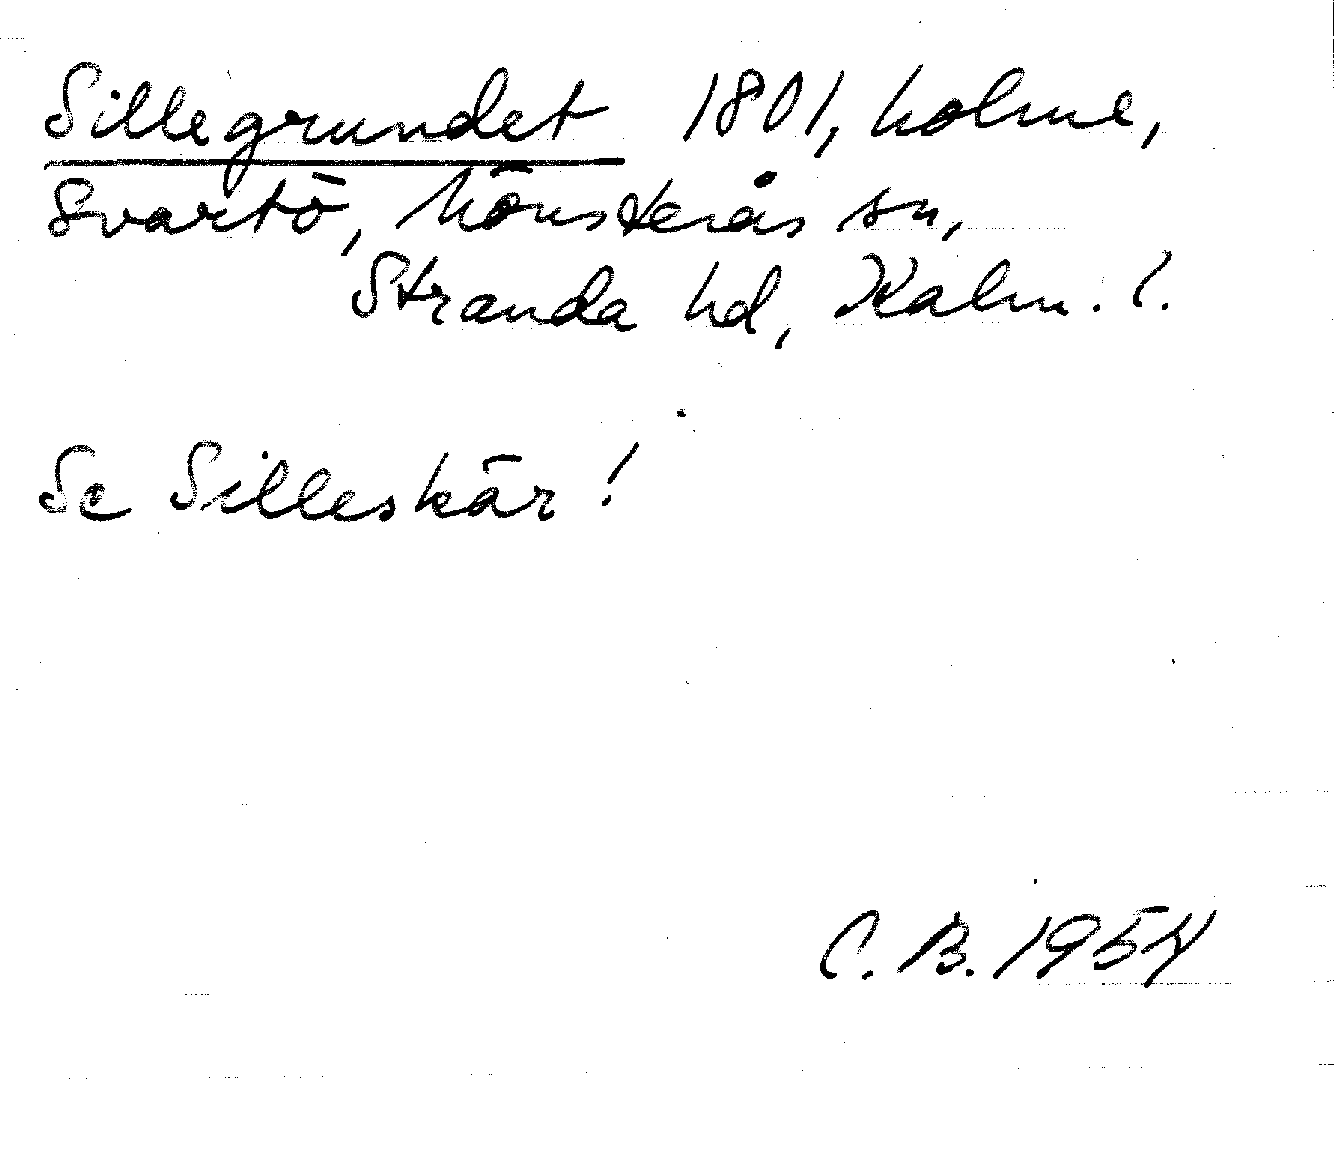 Sillegrundet 1801, holme,
Svartö, Mönsterås sn,
Stranda hd, Kalm. l.
Se Silleskär!
C. B. 1954